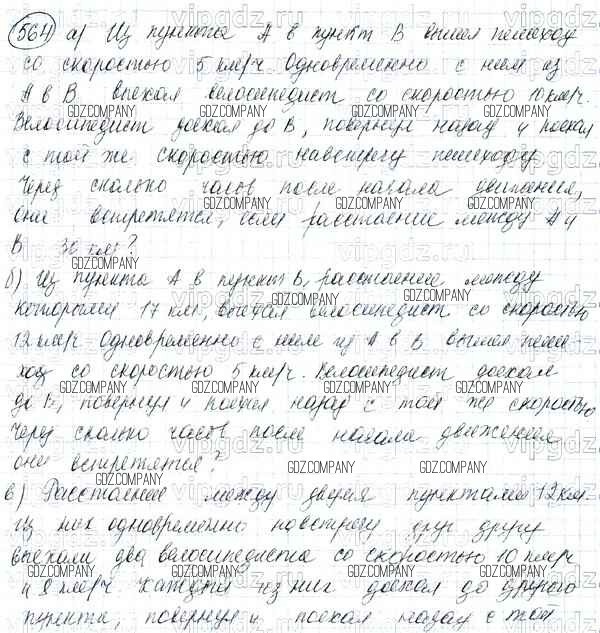 564 а) Из пункта А в пункт В вышел пешеход
со скоростью 5 км/ч. Одновременно с ним из
А в В выехал велосипедист со скоростью 10 км/ч.
Велосипедист доехал до В, повернул назад и поехал
с той же скоростью навстречу пешеходу.
Через сколько часов после начала движения,
они встретятся, если расстояние между А и
В 30 км?
б) Из пункта А в пункт В, расстояние между
которыми 17 км, выехал велосипедист со скоростью
12 км/ч. Одновременно с ним из А в В вышел пеше-
ход со скоростью 5 км/ч. Велосипедист доехал
до В, повернул и поехал назад с той же скоростью
Через сколько часов после начала движения
они встретятся?
в) Расстояние между двумя пунктами 12 км.
Из них одновременно навстречу друг другу
выехали два велосипедиста со скоростью 10 км/ч
и 8 км/ч. Каждый из них доехал до другого
пункта, повернул и поехал назад с той